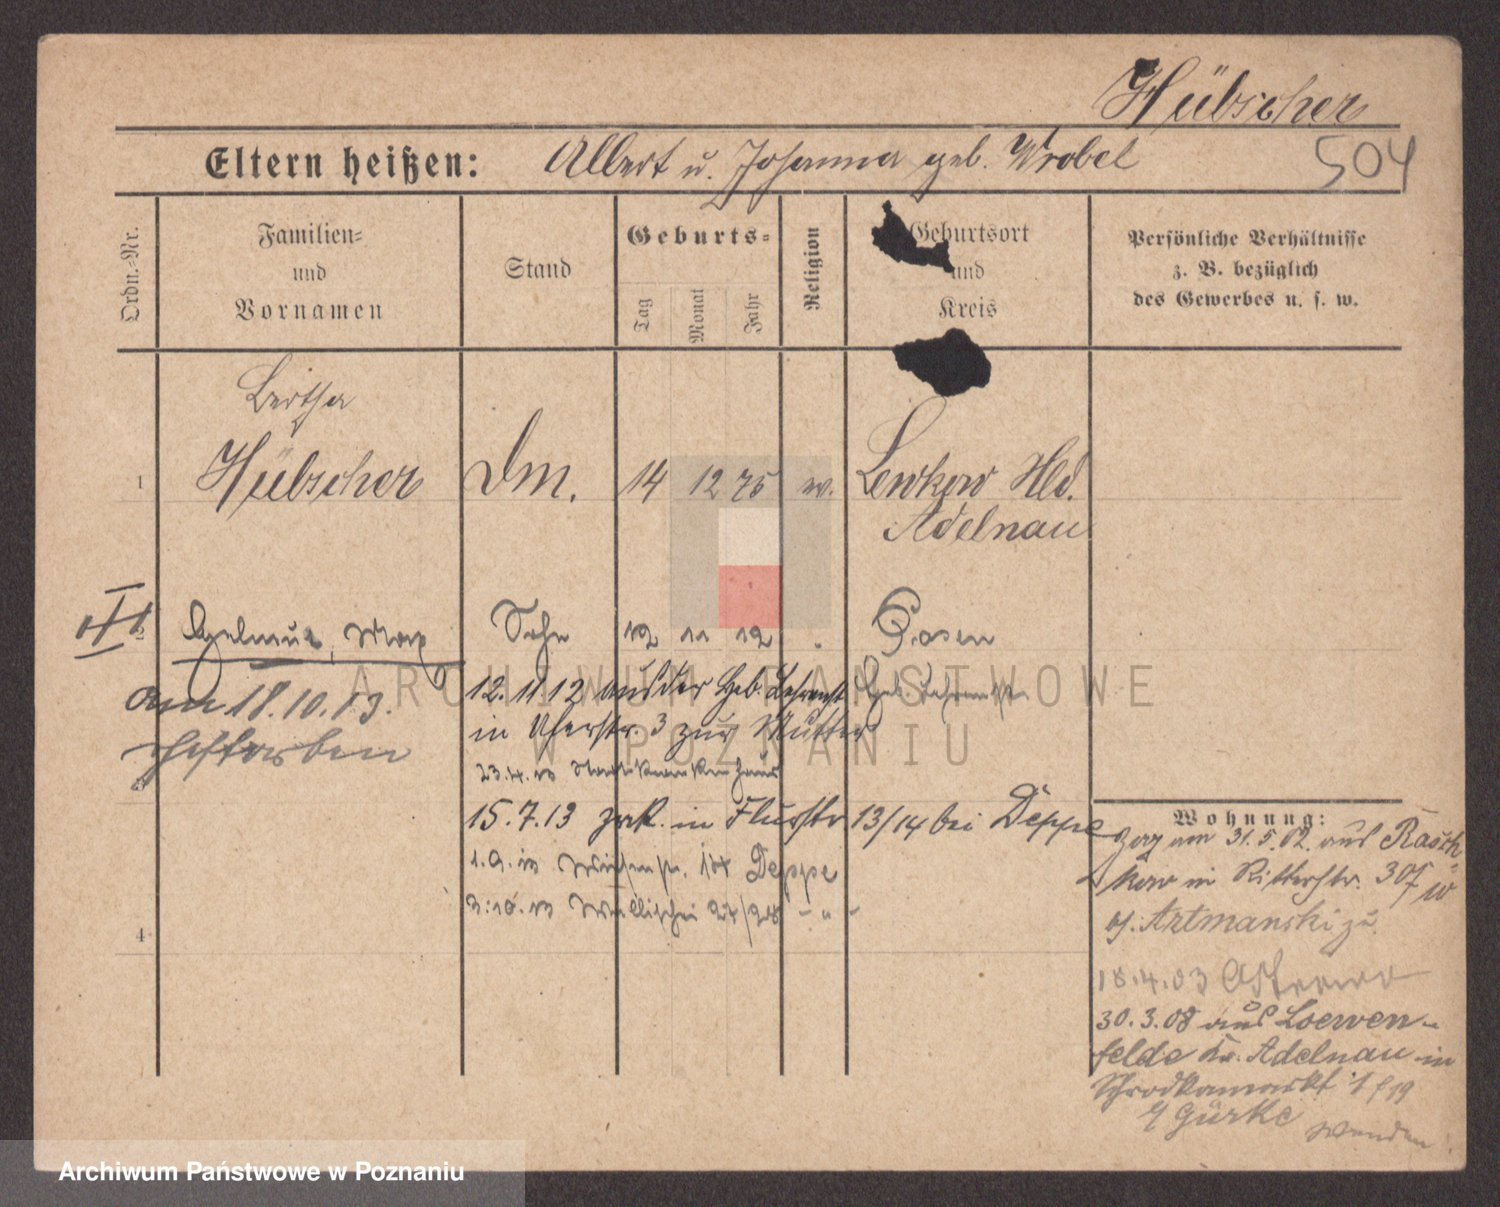 Hübscher
Eltern heißen: Albert u. Johanna geb. Wrobel
504
Ordn.-Nr.
Familien-
und
Vornamen
Stand
Geburts-
Tag
Monat
Jahr
Religion
Geburtsort
und
Kreis
Persönliche Verhältnisse
z. B. bezüglich
des Gewerbes u. s. w.
Bertha
1 Hübscher Dm. 14 12 75 Lewkow Hld.
Adelnau
2 Helmut, Max Sohn 12 11 12 Posen
12.11.12 aus der Geb. Lehranst
am 18.10.13. in Uferstr. 3 zur Mutter
gestorben
23.4.13 Stadtkrankenhaus
3
15.7.13 zrk. in Flurstr 13/14 bei Deppe
1.9.13 Deppe
3.10.13 Wallischei 27/28 - " -
4
Wohnung:
zog am 31.5.02. aus Rasch-
kow in Ritterstr.
Artmanski zu
18.4.03 Ostrowo
30.3.08 aus Loewen-
felde Kr. Adelnau in
Schrodkamarkt
Gürke
wenden
ARCHIWUM PAŃSTWOWE
W POZNANIU
Archiwum Państwowe w Poznaniu